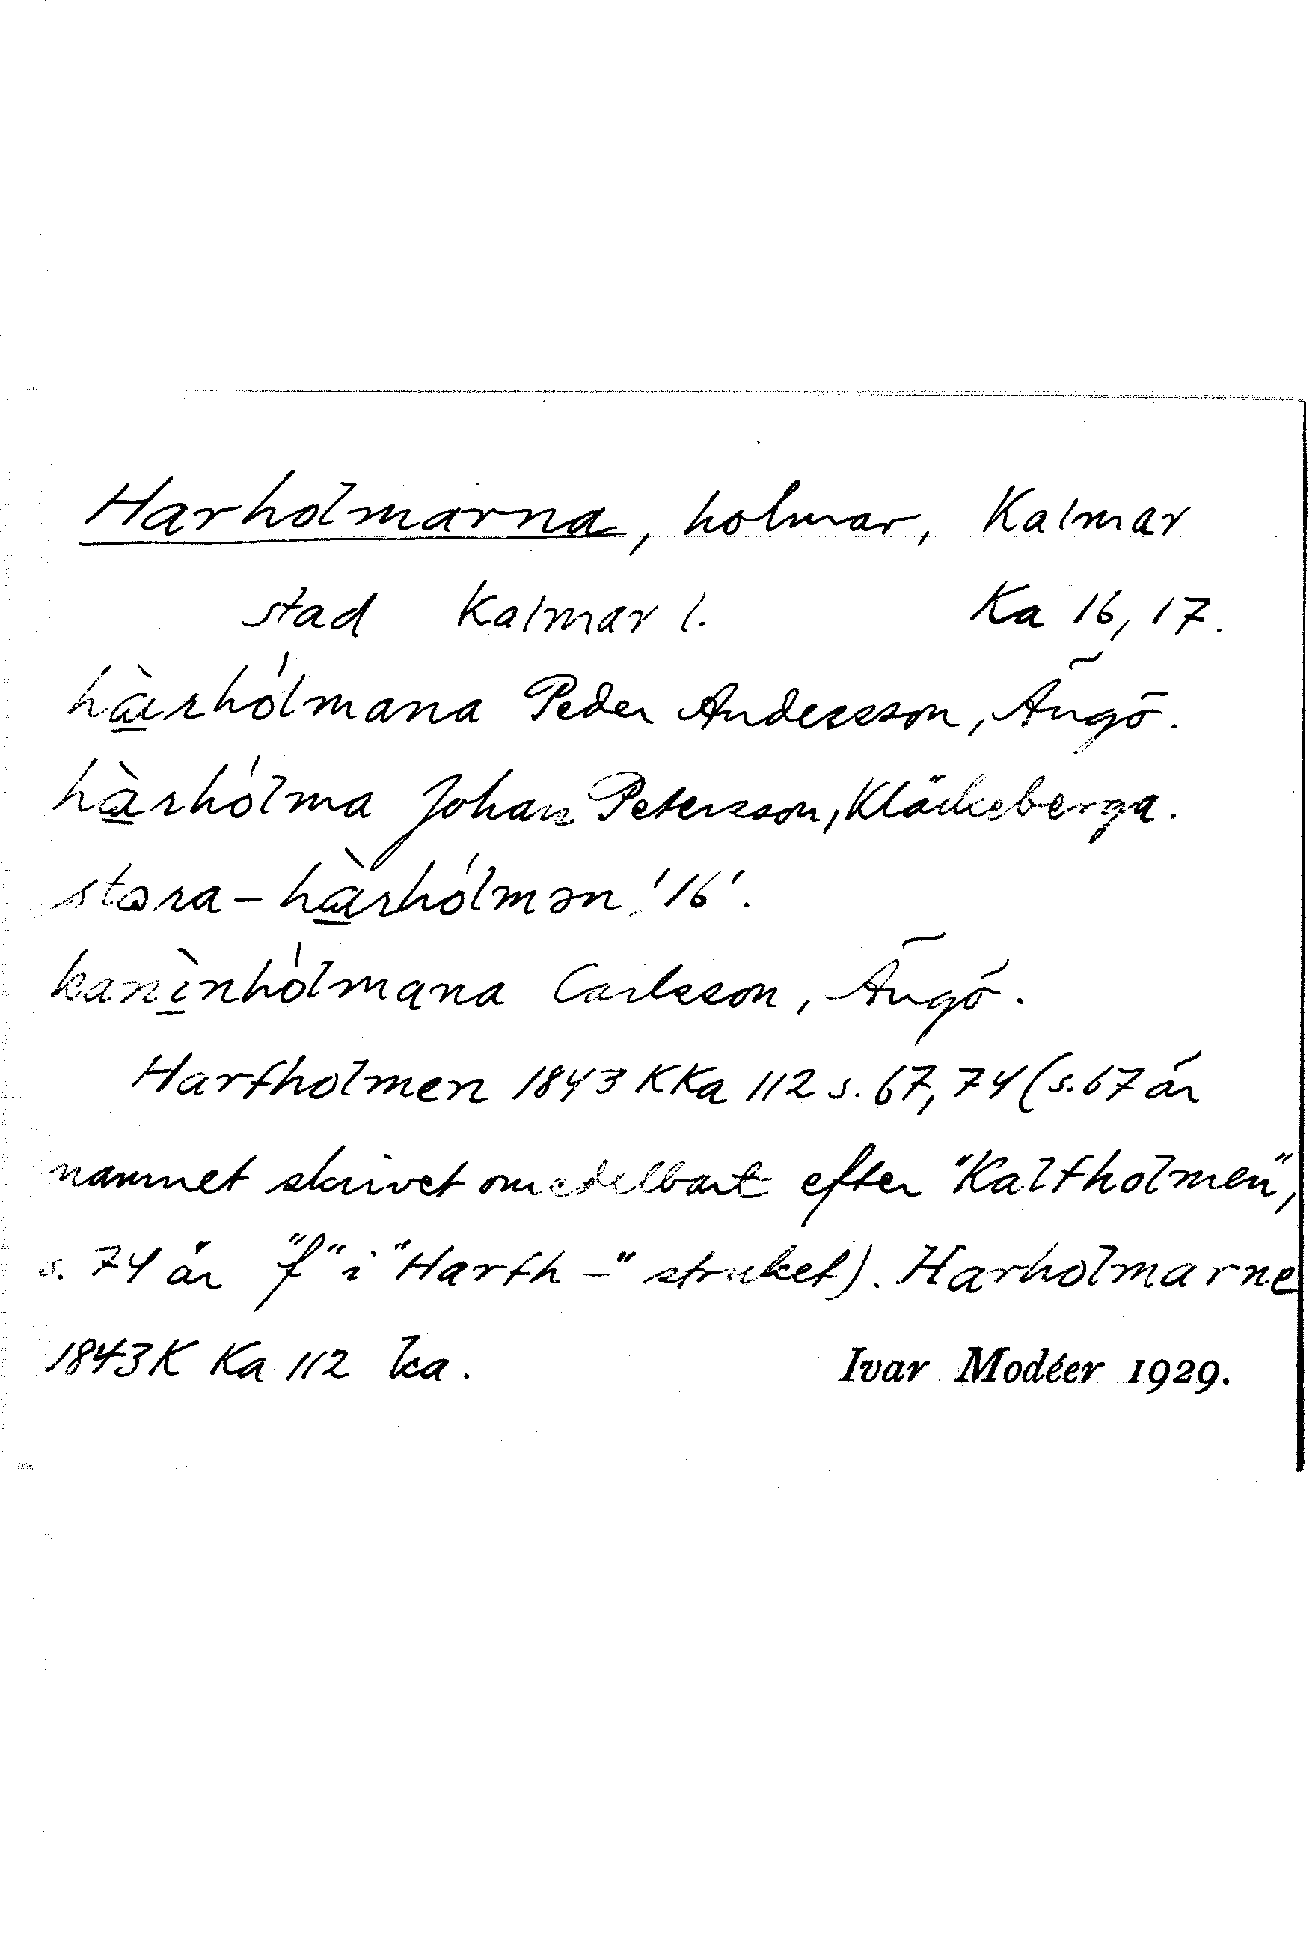 Harholmarna, holmar, Kalmar
stad Kalmar l. Ka 16, 17.
hàrhólmana Peder Andersson, Ängö.
hàrhólma Johan Petersson, Kläckeberga.
stora-hàrhólmən '16'.
kanìnhólmana Carlsson, Ängö.
Harfholmen 1843 K Ka 112 s. 67, 74 (s. 67 är
namnet skrivet omedelbart efter "Kalfholmen",
s. 74 är "f" i "Harfh-" struket). Harholmarne
1843 K Ka 112 ka.
Ivar Modéer 1929.